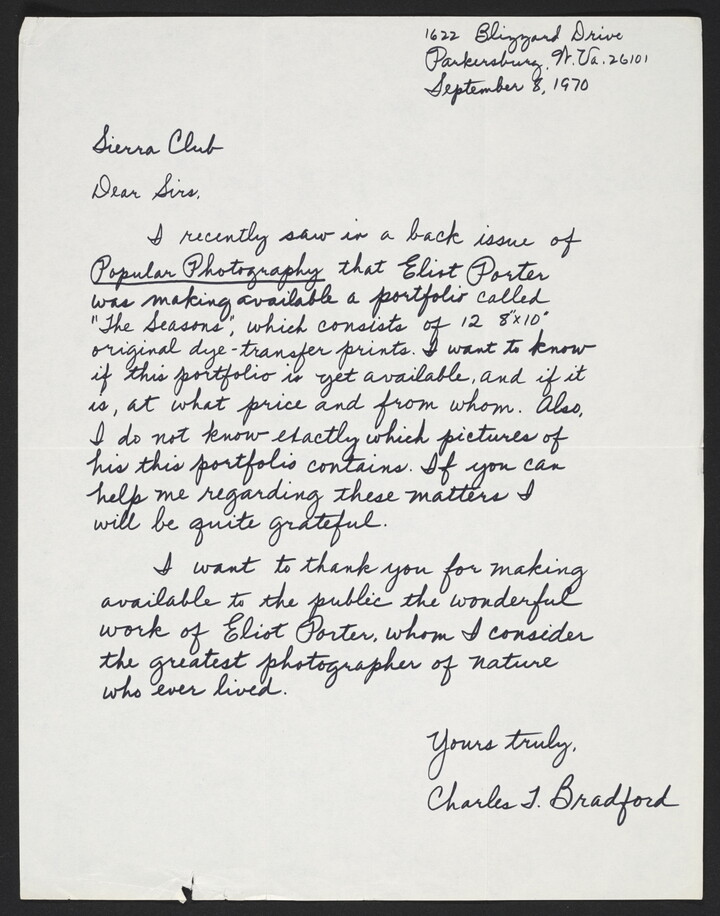 1622 Blizzard Drive
Parkersburg, W. Va. 26101
September 8, 1970
Sierra Club
Dear Sirs,
I recently saw in a back issue of
Popular Photography that Eliot Porter
was making available a portfolio called
"The Seasons", which consists of 12 8"x10"
original dye-transfer prints. I want to know
if this portfolio is yet available, and if it
is, at what price and from whom. Also,
I do not know exactly which pictures of
his this portfolio contains. If you can
help me regarding these matters I
will be quite grateful.
I want to thank you for making
available to the public the wonderful
work of Eliot Porter, whom I consider
the greatest photographer of nature
who ever lived.
Yours truly,
Charles T. Bradford